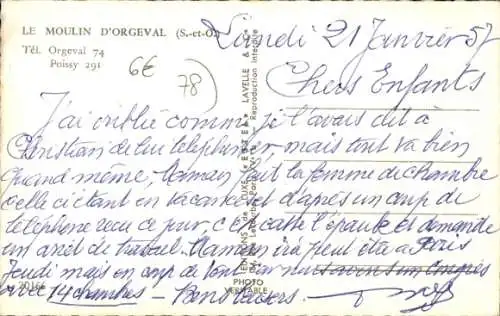 LE MOULIN D'ORGEVAL (S.-et-O.)
Tél. Orgeval 74
Poissy 291
6€
78)
Lundi 21 Janvier 57
Chers Enfants
J'ai oublié comme je l'avais dit à
Christian de lui téléphoner, mais tout va bien
quand même, Maman fait la femme de chambre
celle ci étant en vacances et d'après un coup de
téléphone reçu ce jour, c'est cassé l'épaule et demande
un arrêt de travail. Maman ira peut être à Paris
Jeudi mais en coup de vent car nous avons un Congrès
avec 14 chambres - Bons baisers.
20166
EDITIONS de LUXE "ESTEL" LAVELLE &
Reproduction Interdite
PHOTO
VERITABLE